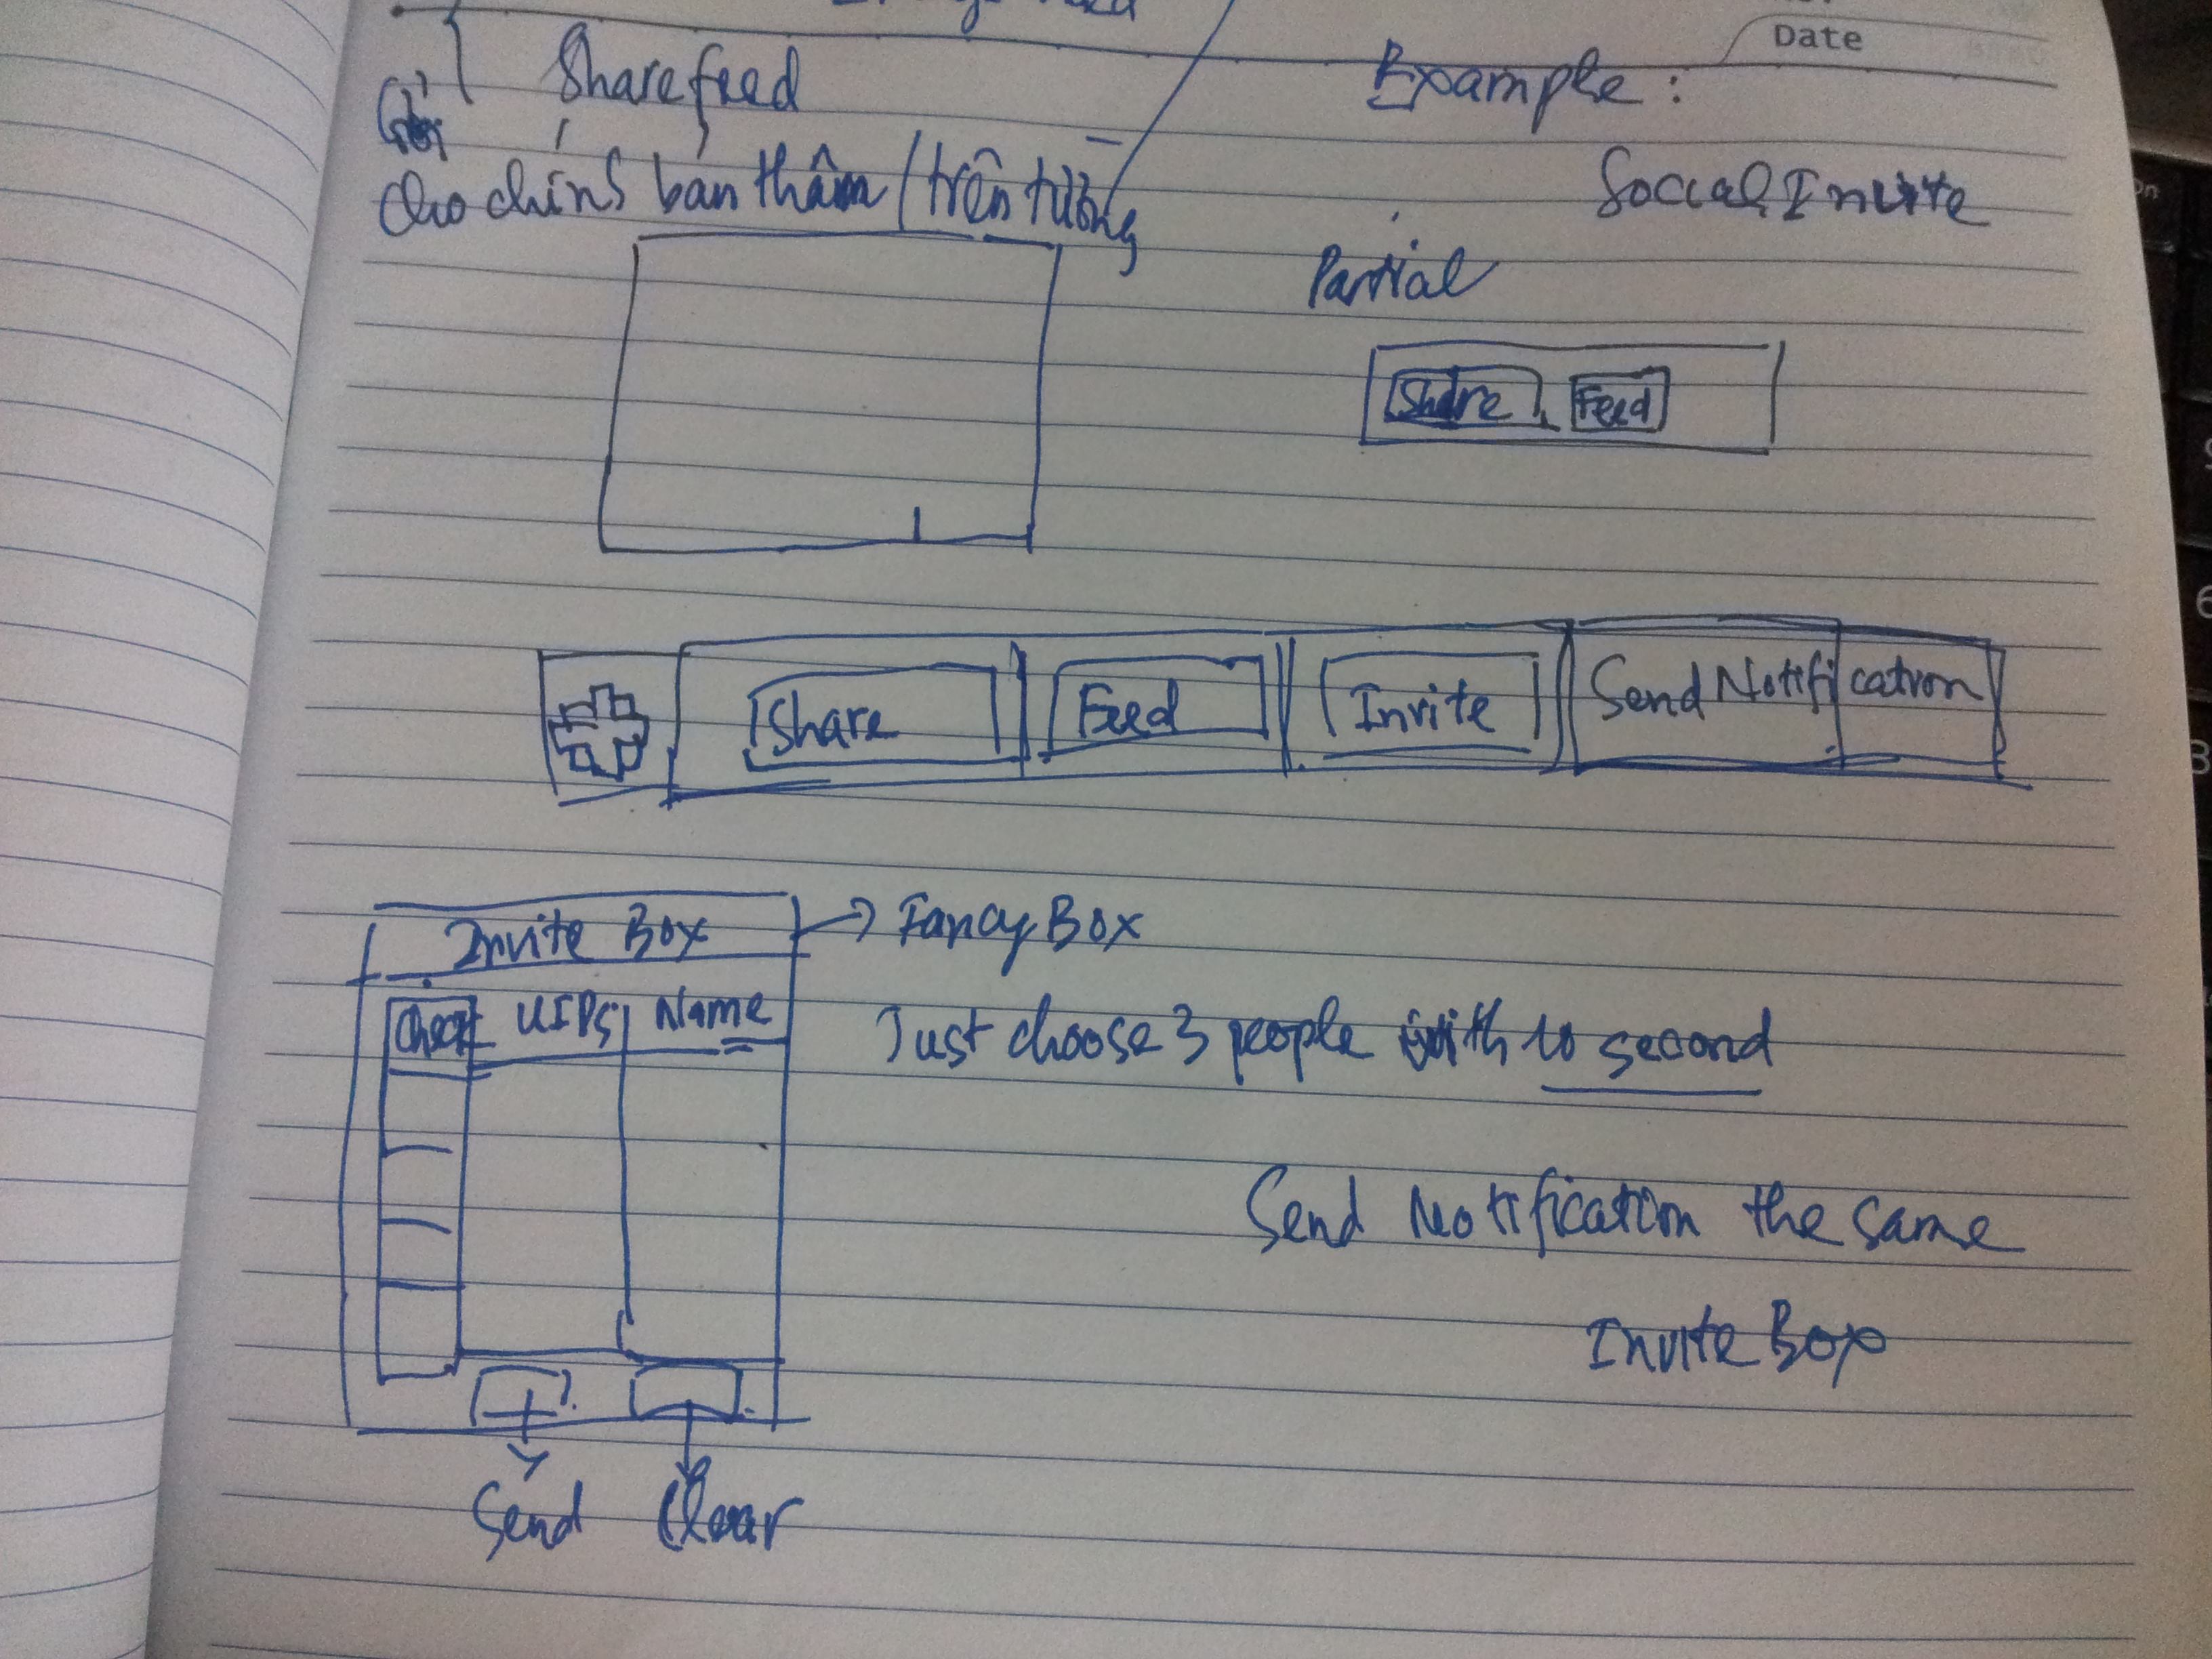 Date
Share feed
Example :
Gởi
cho chính bản thâm / trên tường
Social Invite
Partial
Share Feed
Share Feed Invite Send Notification
Invite Box
Fancy Box
Check UIDs Name
Just choose 3 people with 10 second
Send Notification the same
Invite Box
Send Clear